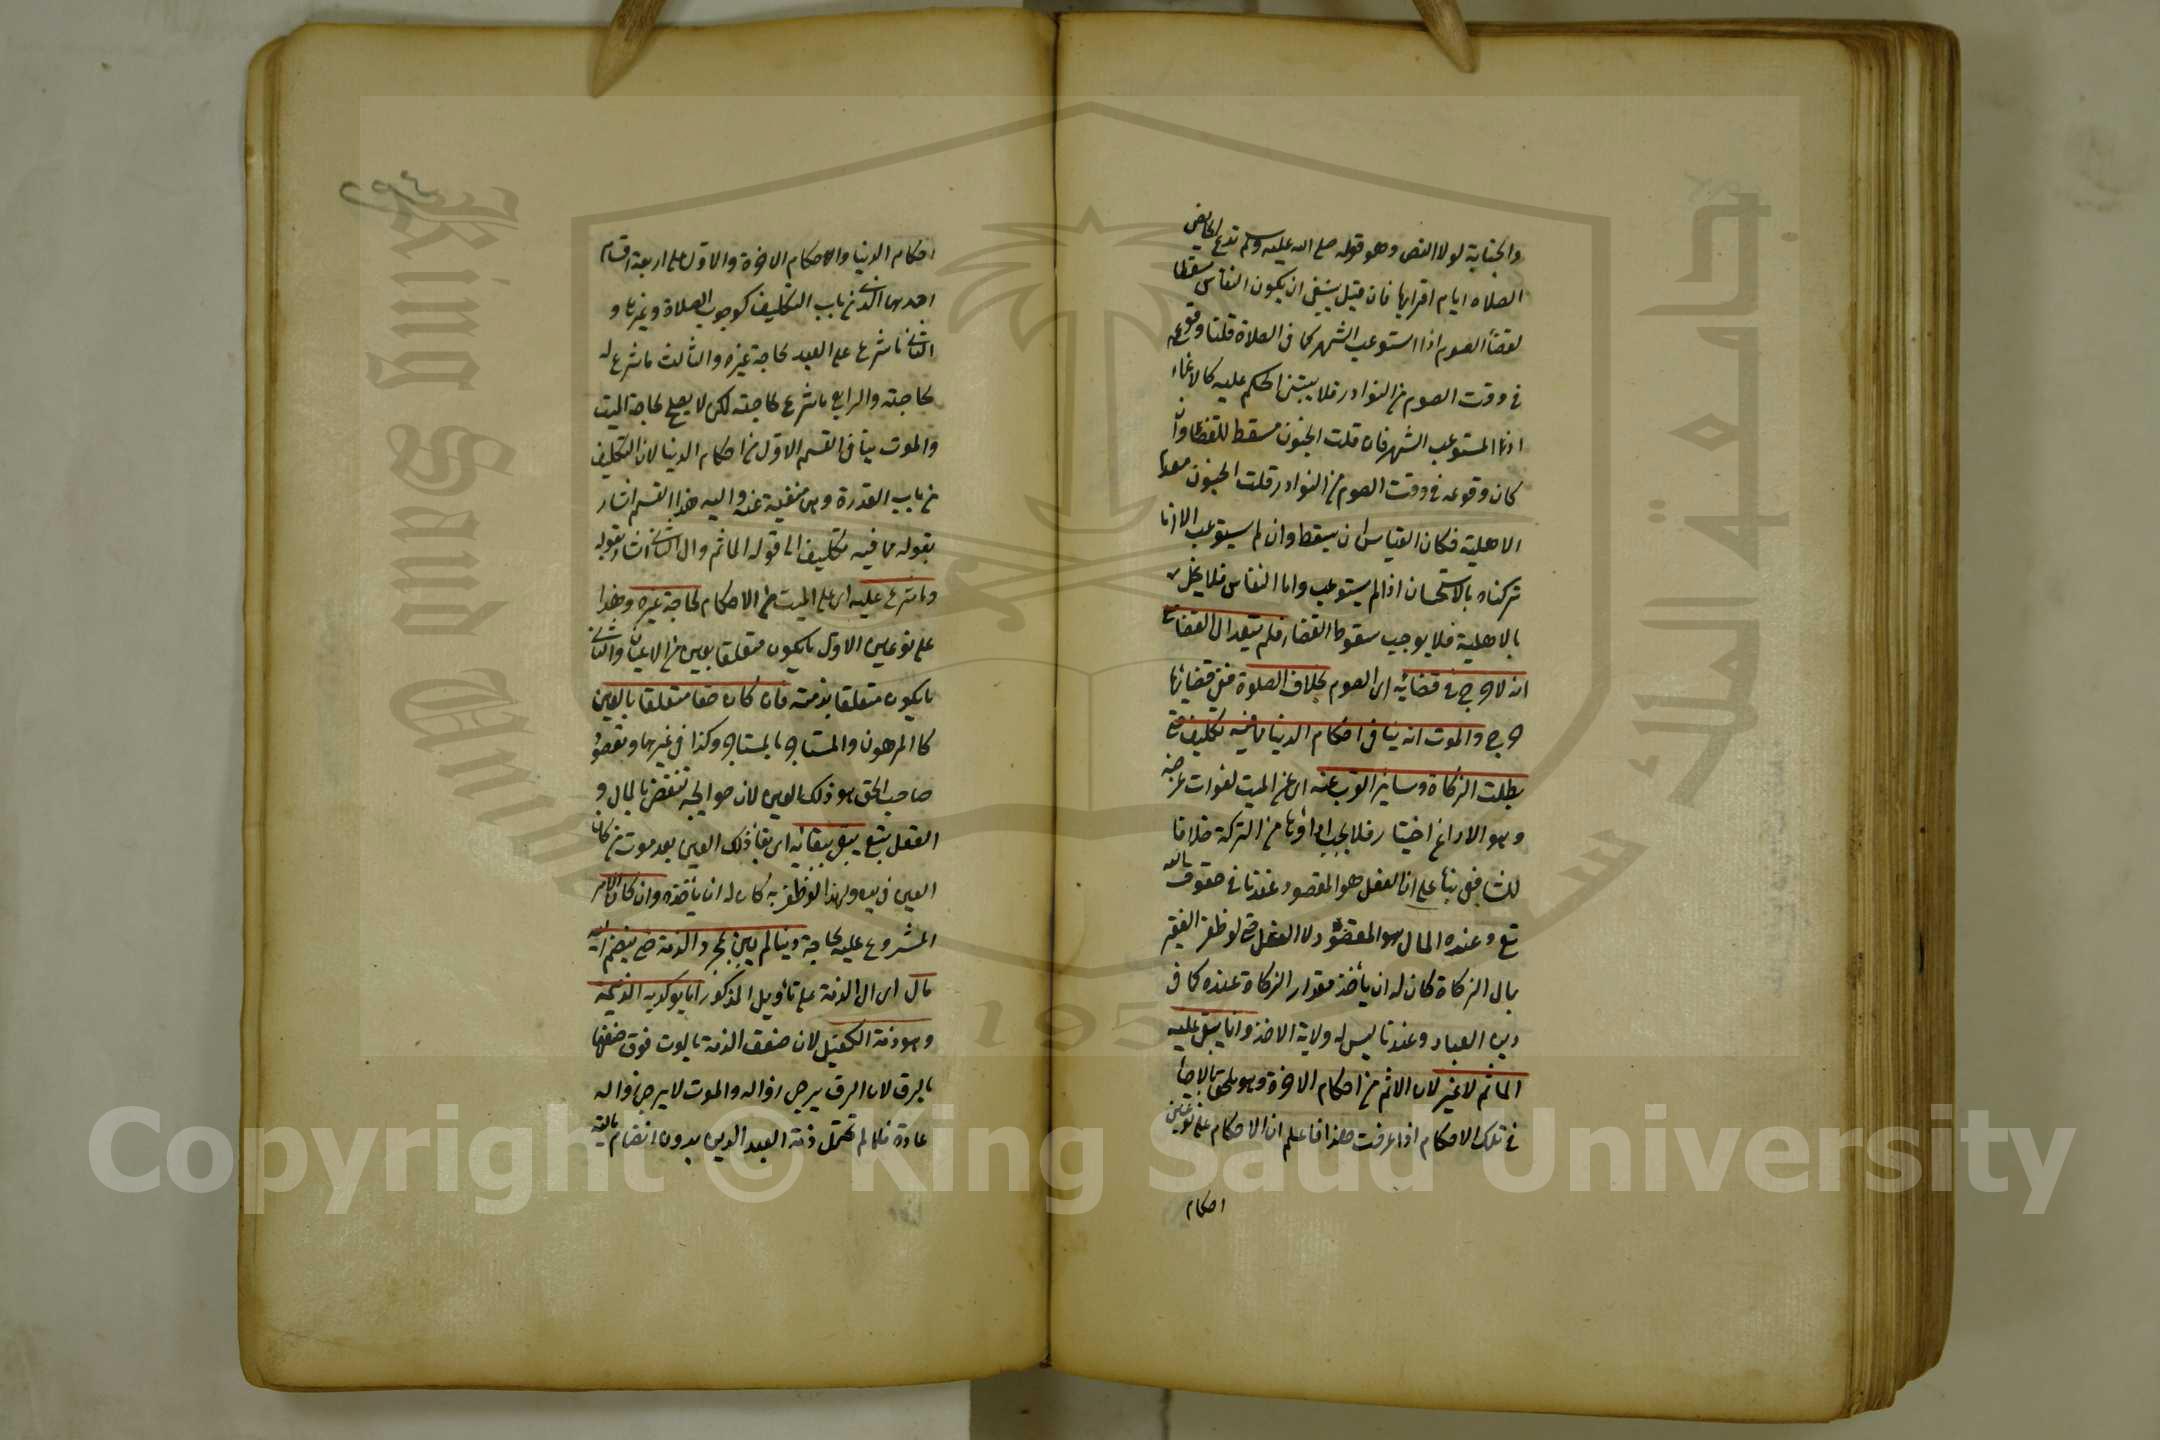 والجنابة لولا النص وهو قوله صلى الله عليه وسلم تدع الحايض
الصلاة ايام اقرائها فان قيل ينبغي ان يكون النفاس مسقطا
لقضأ الصوم اذا استوعب الشهر كما في الصلاة قلنا وقوعه
في وقت الصوم من النوادر فلا يبتني الحكم عليه كالاغماء
اذا استوعب الشهر فان قلت الجنون مسقط للقضا وان
كان وقوعه في وقت الصوم من النوادر قلت الجنون معدم
الاهلية فكان القياس ان يسقط وان لم يستوعب الا انا
تركناه بالاستحسان اذا لم يستوعب واما النفاس فلا يخل
بالاهلية فلا يوجب سقوط القضاء فلم يتعد الى القضاء مع
انه لا حرج في قضائه اى الصوم بخلاف الصلوة ففي قضائها
حرج والموت انه ينافي احكام الدنيا مما فيه تكليف حتى
بطلت الزكاة وساير القرب عنه اى عن الميت لفوات غرضه
وهو الاداء عن اختيار فلا يجب اداؤها من التركة خلافا
للشافعي بناء على ان الفعل هو المقصود عندنا في حقوق الله
تع وعنده المال هو المقصود لا الفعل حتى لو ظفر الفقير
بمال الزكاة كان له ان يأخذ مقدار الزكاة عنده كما في
دين العباد وعندنا ليس له ولاية الاخذ وانما يبقى عليه
المأثم لا غير لان الاثم من احكام الاخرة وهو ملحق بالاحيأ
في تلك الاحكام اذا عرفت هذا فاعلم ان الاحكام على نوعين
احكام
٢٩٤
احكام الدنيا والاحكام الاخرة والاول على اربعة اقسام
احدها الذى من باب التكليف كوجوب الصلاة وغيرها و
الثاني ما شرع على العبد لحاجة غيره والثالث ما شرع له
لحاجته والرابع ما شرع لحاجته لكن لا يصلح لحاجة الميت
والموت ينافي القسم الاول من احكام الدنيا لان التكليف
من باب القدرة وهى منفية عنه واليه هذا القسم اشار
بقوله مما فيه تكليف الى قوله المأثم والى الثاني اشار بقوله
وما شرع عليه اى على الميت من الاحكام لحاجة غيره وهذا
على نوعين الاول ما يكون متعلقا بعين من الاعيان والثاني
ما يكون متعلقا بذمته فان كان حقا متعلقا بالعين
كالمرهون والمستاجر بالمستاجر وكذا في غيرها ومقصود
صاحب الحق هو ذلك العين لان حوايجه تنقضى بالمال و
الفعل تبع يبقى ببقائه اى بقأ ذلك العين بعد موت من كان
العين في يده ولهذا لو ظفر به كان له ان يأخذه وان كان الامر
المشروع عليه لحاجة دينا لم يبق بمجرد الذمة حتى ينضم اليه
مال اى الى الذمة على تأويل المذكور او ما يوكد به الذمة
وهو ذمة الكفيل لان ضعف الذمة بالموت فوق ضعفها
بالرق لان الرق يرجى زواله والموت لا يرجى زواله
عادة فلما لم تحتمل ذمة العبد الدين بدون انضمام مالية
Copyright © King Saud University
King Saud University
جامعة الملك سعود
195